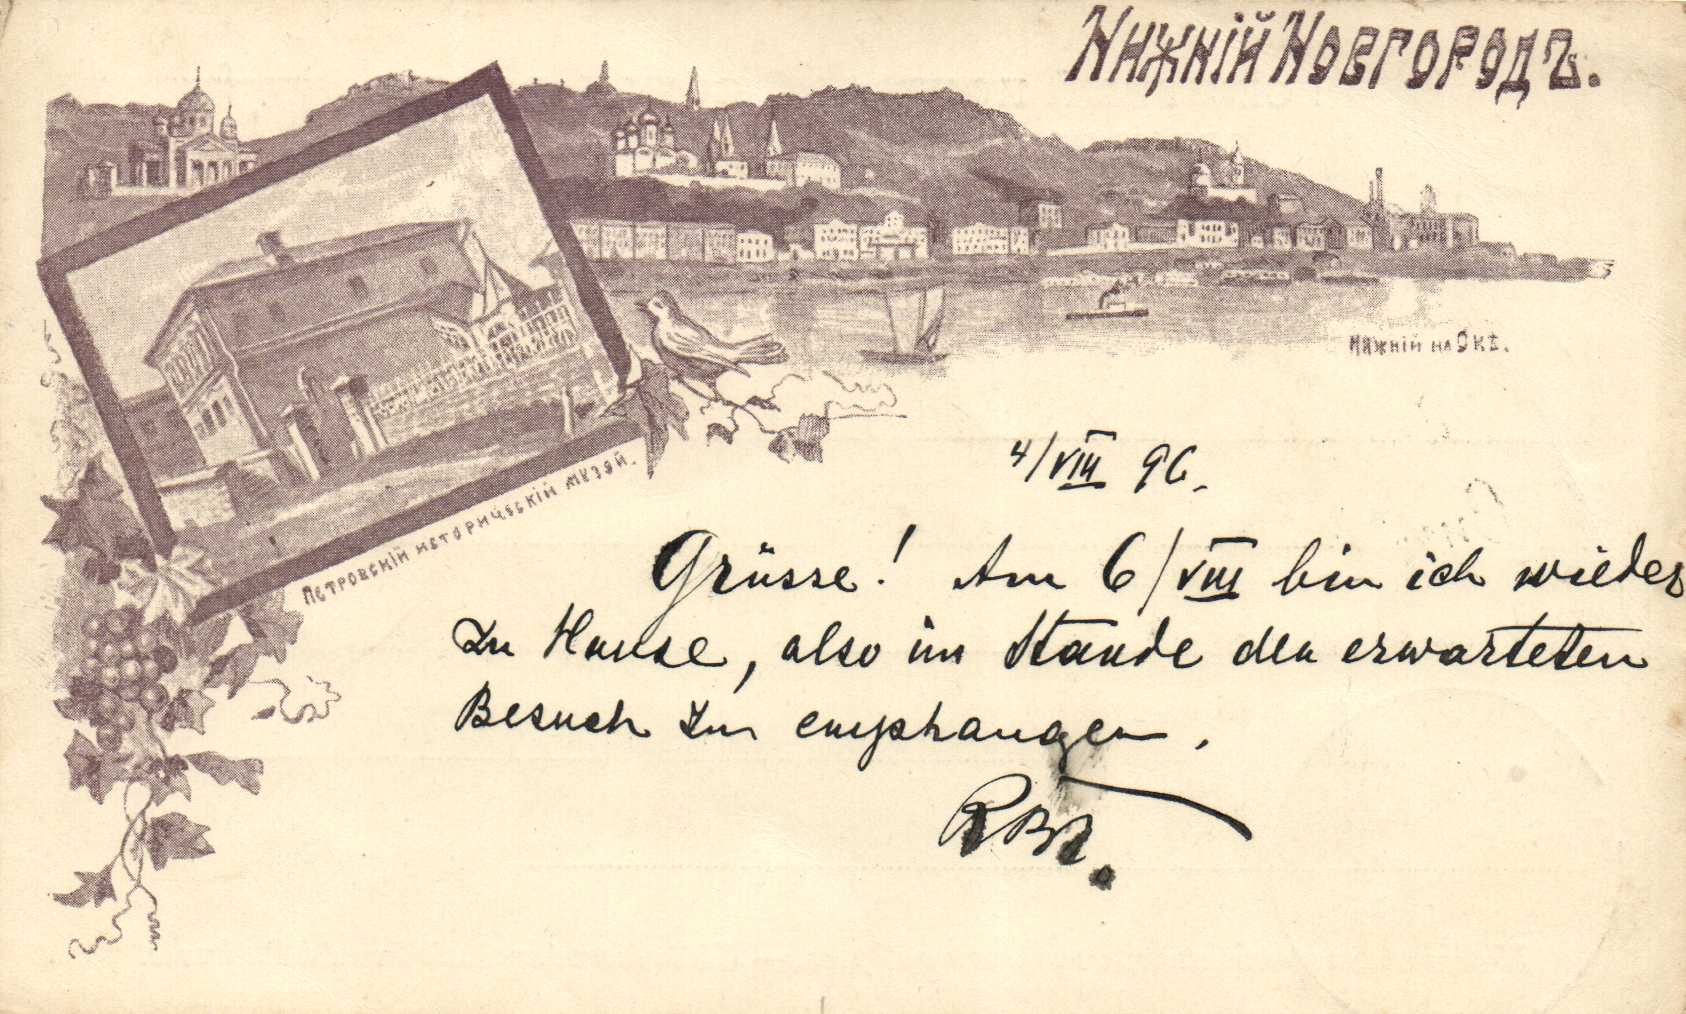 Нижній Новгородъ.
Нижній на Окѣ.
Петровскій историческій музей.
4/VIII 96.
Grüsse! Am 6/VIII bin ich wieder
zu Hause, also im Stande den erwarteten
Besuch zu empfangen.